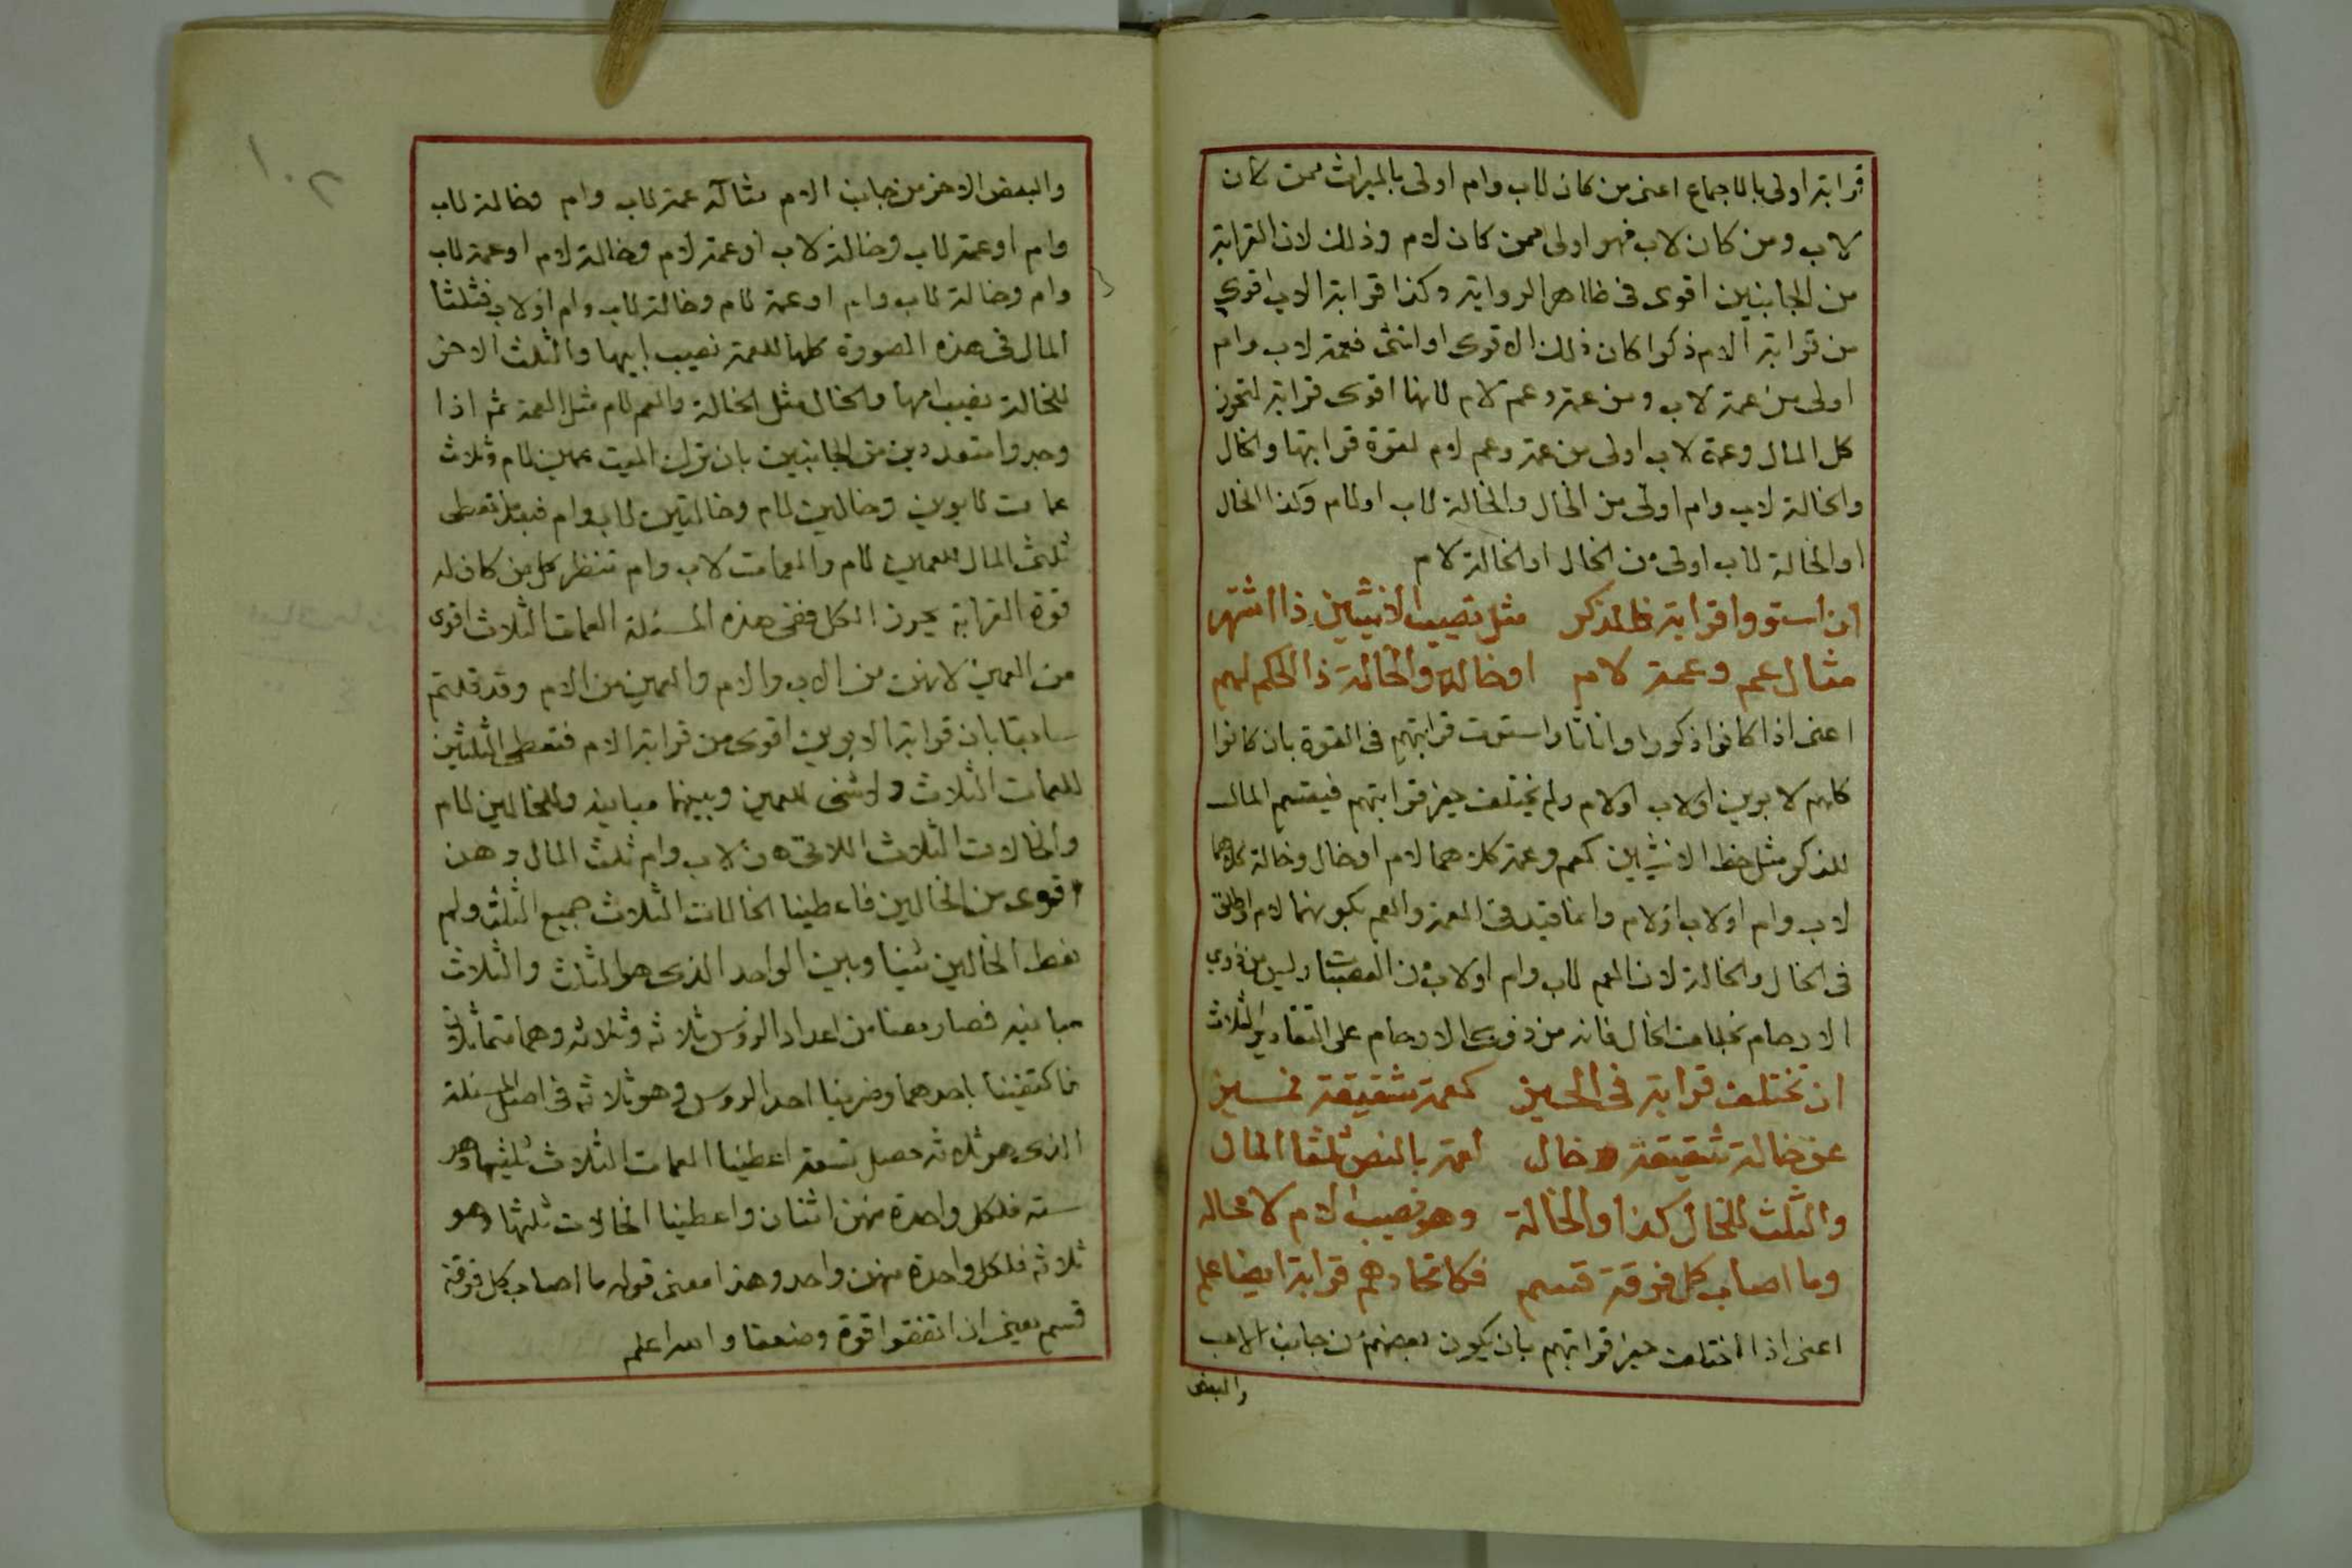 قرابته اولى بالاجماع اعنى من كان لاب وام اولى بالميراث ممن كان
لاب ومن كان لاب فهو اولى ممن كان لام وذلك لان القرابة
من الجانبين اقوى فى ظاهر الرواية وكذا قرابة الاب اقوى
من قرابة الام ذكرا كان ذلك الاقوى او انثى فعمة لاب وام
اولى من عمة لاب ومن عمة وعم لام لانها اقوى قرابة لتحرز
كل المال وعمة لاب اولى من عمة وعم لام لقوة قرابتها والخال
والخالة لاب وام اولى من الخال والخالة لاب او لام وكذا الخال
او الخالة لاب اولى من الخال او الخالة لام
ان استووا قرابة فللذكر مثل نصيب الانثيين ذا اشتهر
مثال عم وعمة لام او خاله والخالة ذا الحكم لهم
اعنى اذا كانوا ذكورا واناثا واستوت قرابتهم فى القوة بان كانوا
كلهم لابوين او لاب او لام ولم يختلف حيز قرابتهم فيقسم المال
للذكر مثل حظ الانثيين كعم وعمة كلاهما لام او خال وخالة كلاهما
لاب وام او لاب او لام وانما قيد فى العمة والعم بكونهما لام واطلق
فى الخال والخالة لان العم لاب وام او لاب من العصبات وليس من ذوي
الارحام بخلاف الخال فانه من ذوى الارحام على التقادير الثلاث
ان تختلف قرابة فى الحيز كعمة شقيقة
عن خالة شقيقة وخال لعمة بالنص ثلثا المال
والثلث للخال كذا والخالة وهو نصيب الام لا محاله
وما اصاب كل فرقة قسم فكاتحادهم قرابة ايضا علم
اعنى اذا اختلف حيز قرابتهم بان يكون بعضهم من جانب الاب
والبعض
٢٠١
والبعض الاخر من جانب الام مثاله عمة لاب وام وخالة لاب
وام او عمة لاب وخالة لاب او عمة لام وخالة لام او عمة لاب
وام وخالة لاب وام او عمة لام وخالة لاب وام او لاب فثلثا
المال فى هذه الصورة كلها للعمة نصيب ابيها والثلث الاخر
للخالة نصيب امها والخال مثل الخالة والعم لام مثل العمة ثم اذا
وجدوا متعددين من الجانبين بان ترك الميت عمين لام وثلاث
عمات لابوين وخالين لام وخالتين لاب وام فبعد تعطى
ثلثى المال للعمين لام والعمات لاب وام تنظر كل من كان له
قوة القرابة يحرز الكل ففى هذه المسئلة العمات الثلاث اقوى
من العمين لانهن من الاب والام والعمين من الام وقد قلتم
سابقا بان قرابة الابوين اقوى من قرابة الام فتعطى الثلثين
للعمات الثلاث ولا شئ للعمين وبينهما مباينه وللخالين لام
والخالات الثلاث اللاتى هن لاب وام ثلث المال وهن
اقوى من الخالين فاعطينا الخالات الثلاث جميع الثلث ولم
نعط الخالين شيئا وبين الواحد الذى هو الثلث والثلاث
مباينه فصار معنا من اعداد الرؤس ثلاثه وثلاثه وهما متماثلان
فاكتفينا باحدهما وضربنا احد الروس وهو ثلاثه فى اصل المسئلة
الذى هو ثلاثه حصل تسعة اعطينا العمات الثلاث ثلثيها وهو
سته فلكل واحدة منهن اثنان واعطينا الخالات ثلثها وهو
ثلاثه فلكل واحدة منهن واحد وهذا معنى قوله ما اصاب كل فرقة
قسم يعنى ان اتفقوا قوة وضعفا والله اعلم